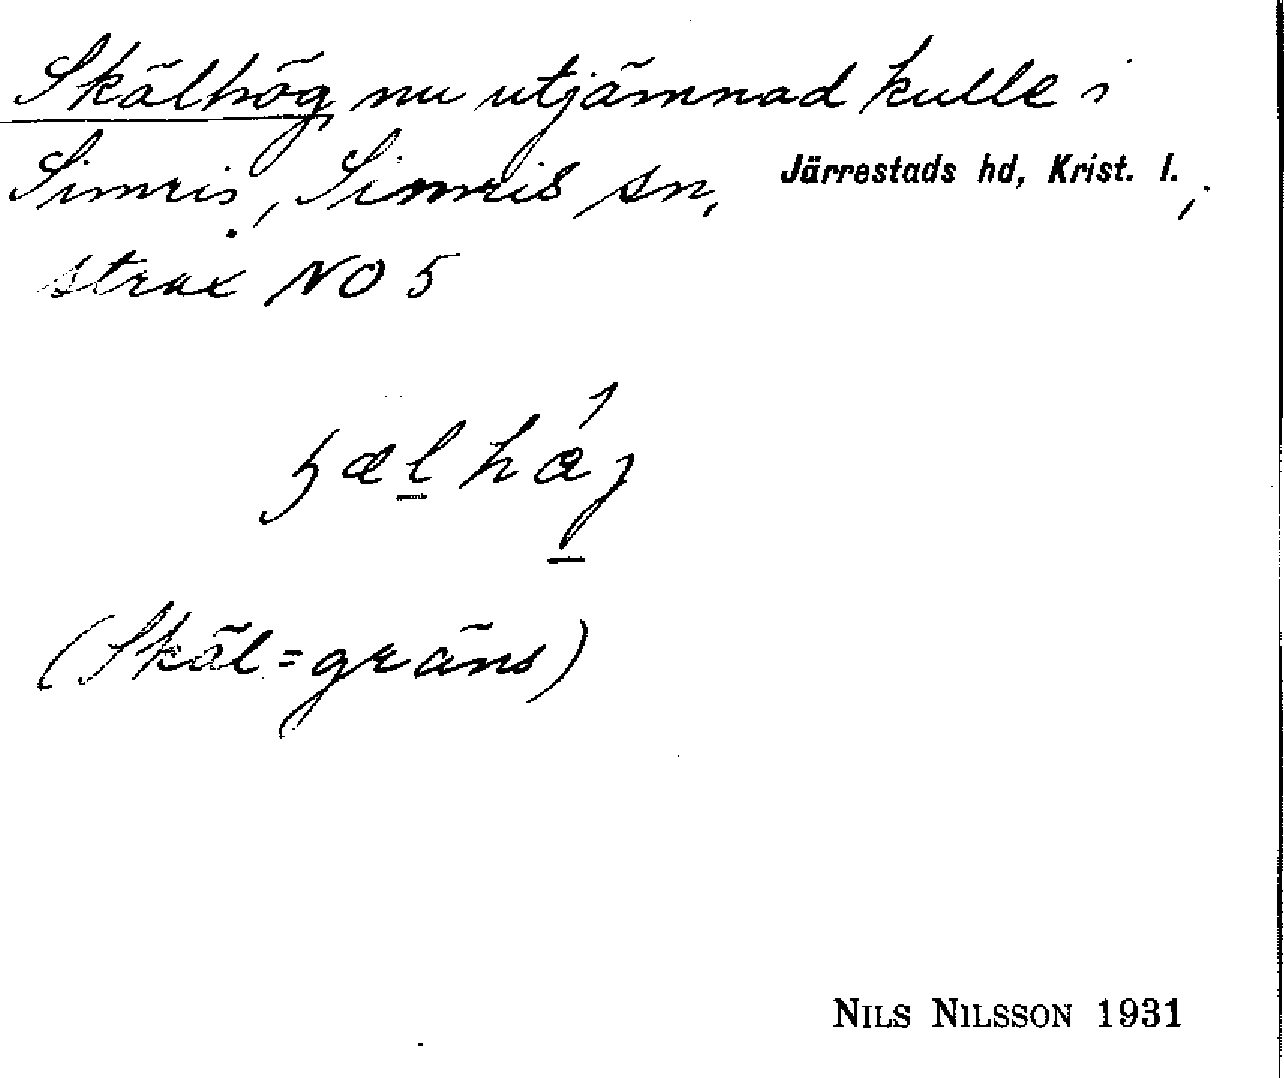 Skälhög nu utjämnad kulle i
Simris, Simris sn, Järrestads hd, Krist. l.;
strax NO 5
(Skäl=gräns)
NILS NILSSON 1931